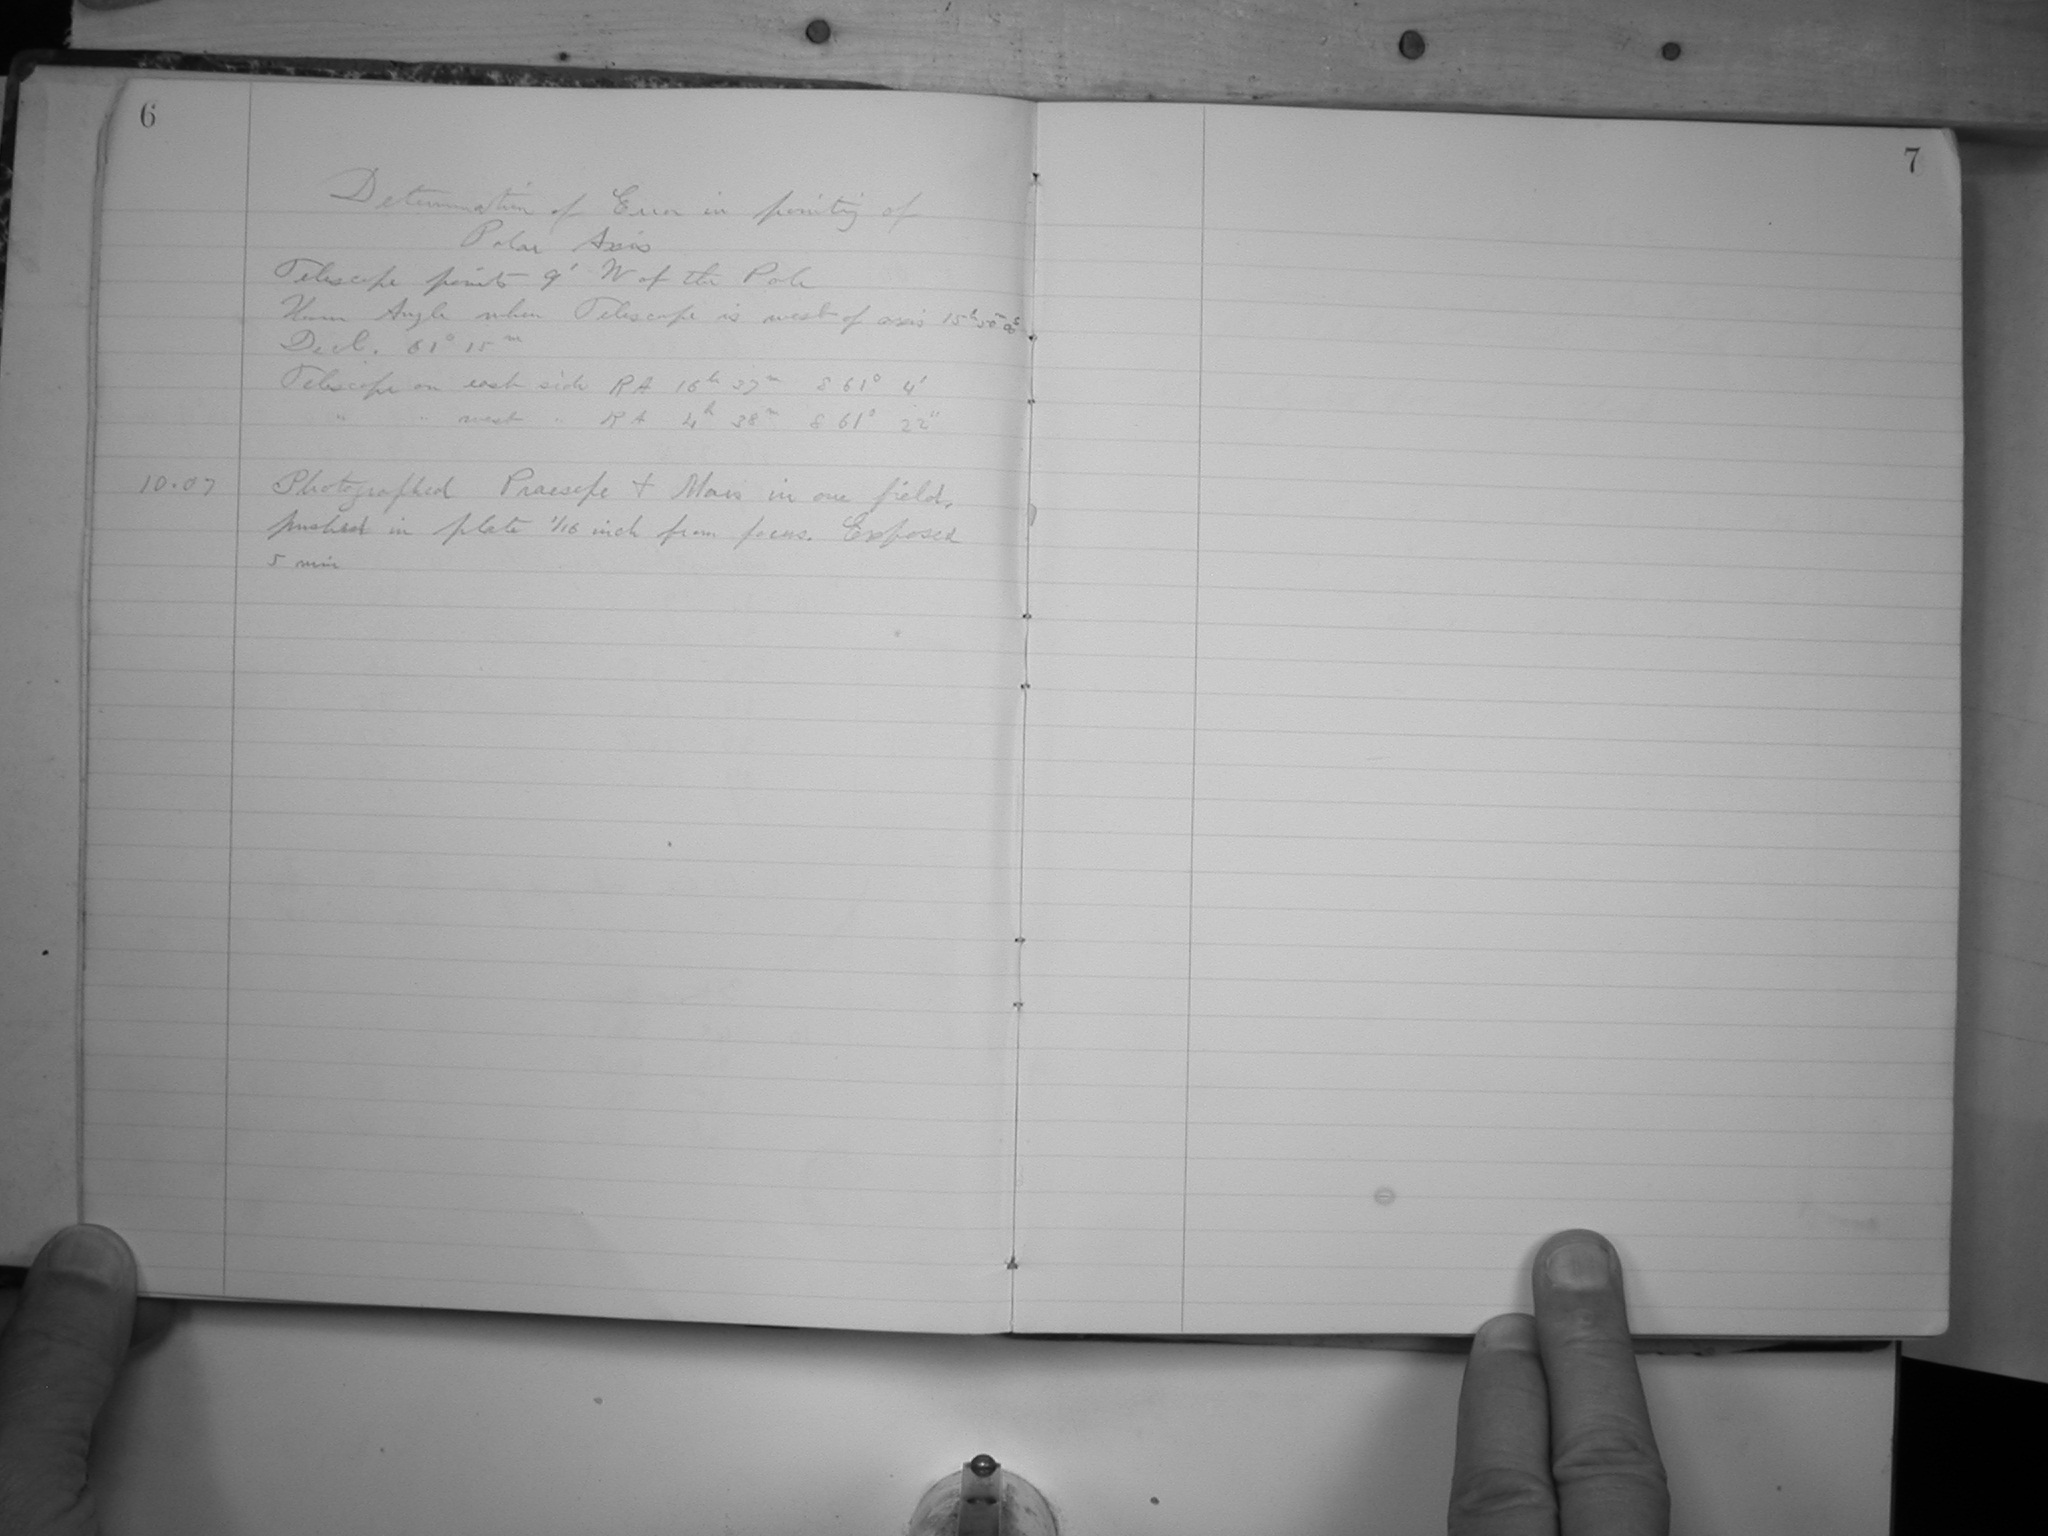 6
Determination of Error in pointing of
Polar Axis
Telescope points 9' W of the Pole
Hour Angle when Telescope is west of axis 15h 50m
Decl. 61° 15m
Telescope on east side RA 16h 37m δ 61° 4'
" " west " RA 4h 38m δ 61° 22"
10.07 Photographed Praesepe + Mars in one field,
pushed in plate 1/16 inch from focus. Exposed
5 min
7